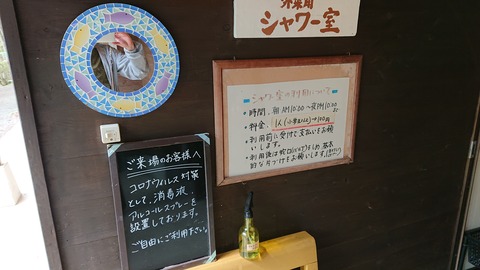 シャワー室
シャワー室の利用について
・時間、朝AM10:00〜夕PM
・料金、1人(小学生以上)→100円
・利用前に受付で支払いをお願
いします。
・利用後は
な片づけをお願いします。
ご来場のお客様へ
コロナウィルス対策
として、消毒液、
アルコールスプレーを
設置しております。
ご自由にご利用下さい。